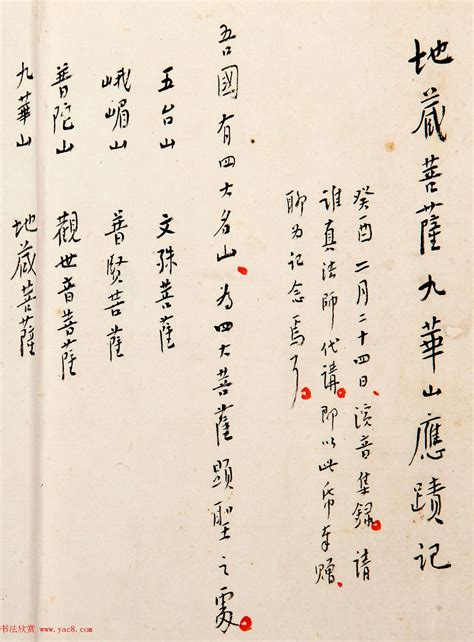 地藏菩薩九華山應蹟記
癸酉二月二十四日、演音集錄。請
誰真法師代講。即以此帋奉贈、
聊为記念焉了。
吾國有四大名山、为四大菩薩顕聖之處。
五台山 文殊菩薩
峨嵋山 普賢菩薩
普陀山 觀世音菩薩
九華山 地藏菩薩
书法欣赏 www.yac8.com